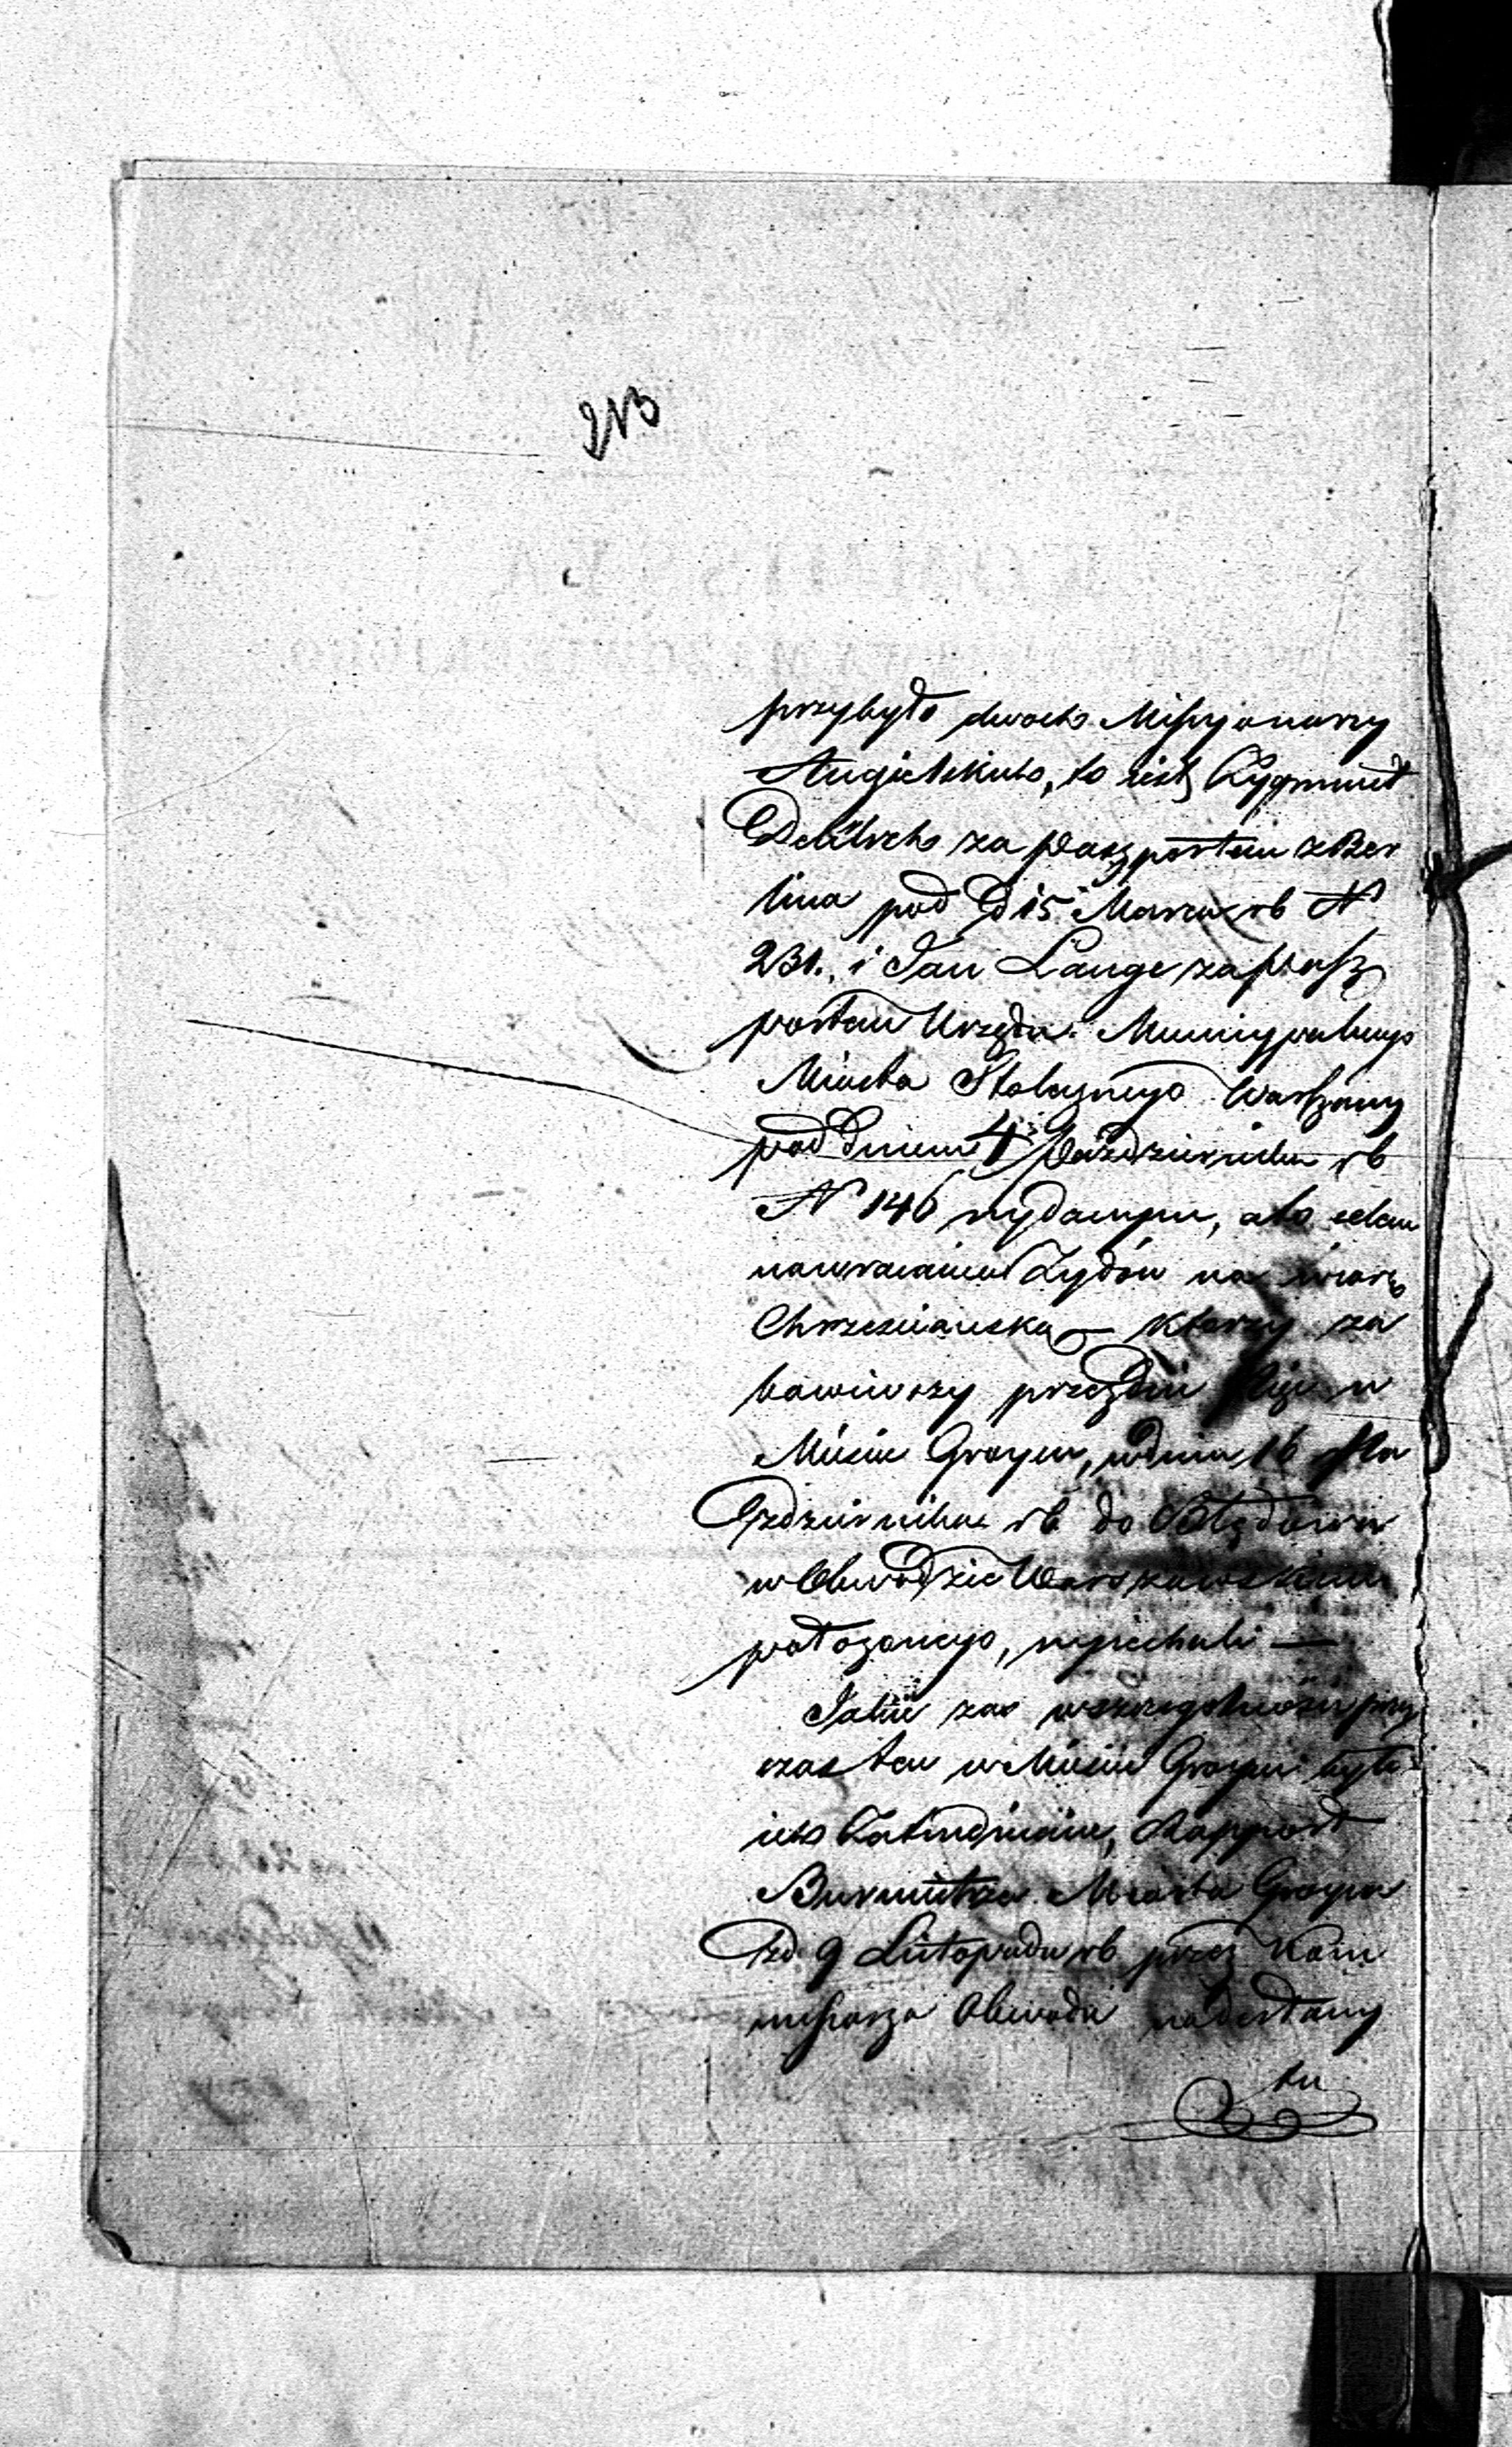 213
przybyło dwoch Missyonarzy
Angielskich, to iest Zygmunt
Deütsch za paszportem z Ber
lina pod D 15 Marca rb N
231. i Jan Lange za pasz
portem Urzędu Municypalnego
Miasta Stołecznego Warszawy
pod Dniem 4 Pazdziernika rb
N 146 wydanym, a to celem
nawracania Zydów na wiarę
Chrzescianską — ktorzy za
bawiwszy przez dni w
Miescie Groycu, w dniu 16 Pa
zdziernika rb do Błędowa
w Obwodzie Warszawskim
położonego, wyiechali —
Jakie zas w szczegolnosci przy
czas ten w Miescie Groycu było
ich Zatrudnienie, Rapport
Burmistrza Miasta Groyca
z d. 9 Listopada rb przez Kom
missarza Obwodu nadesłany
tu